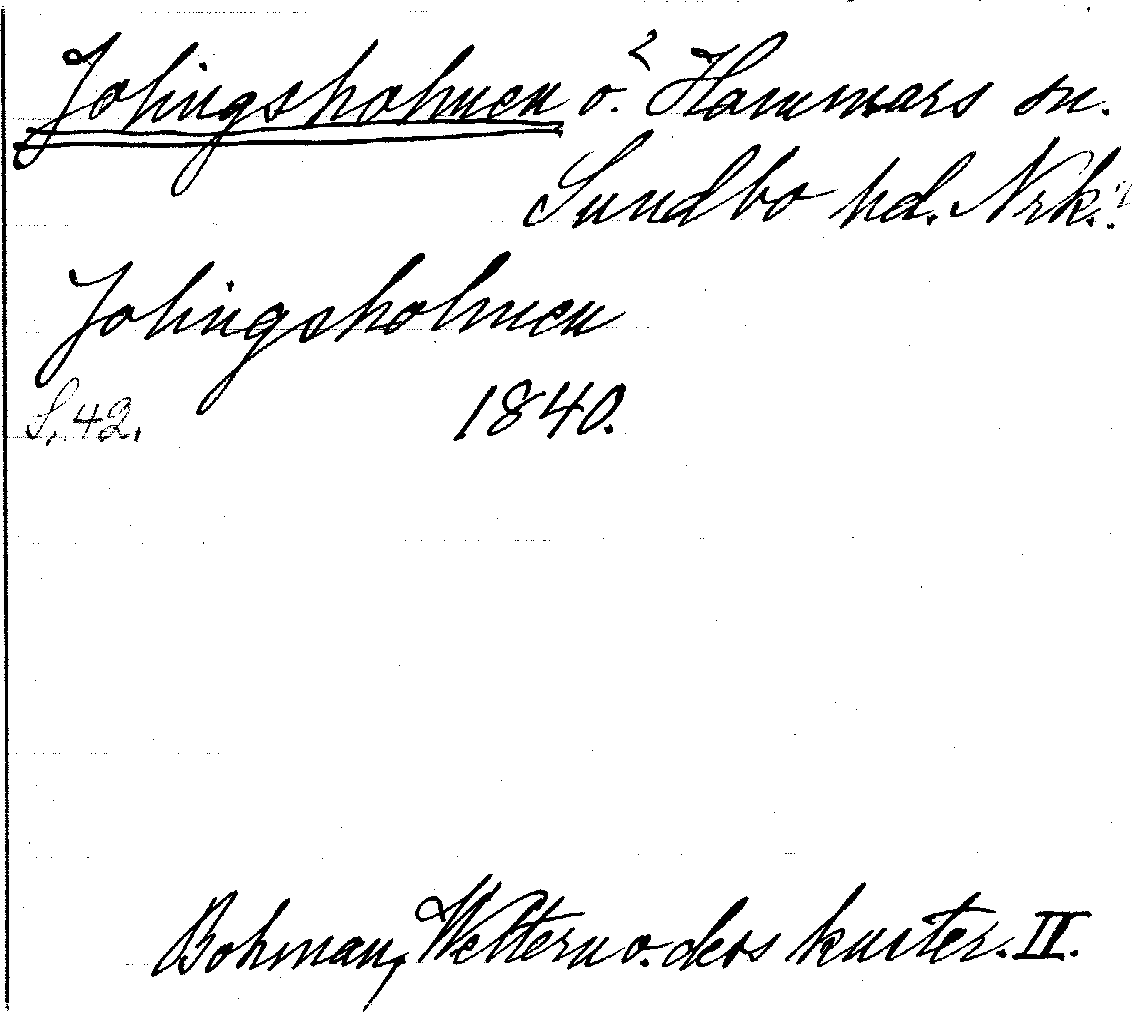 Jolingsholmen ö. Hammars sn.
Sundbo hd. Nrk.
Jolingsholmen
S. 42. 1840.
Bohman, Wettern o. dess kuster. II.